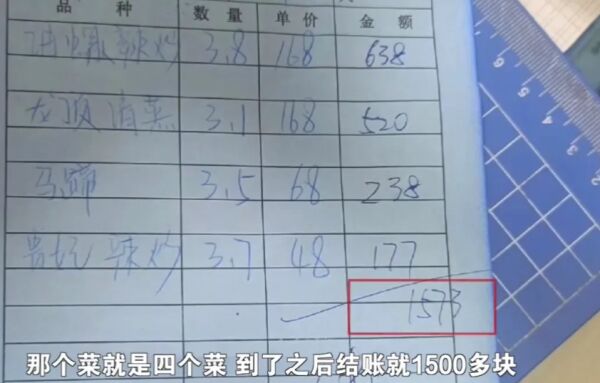 品 种 数 量 单 价 金 额
辣炒 3.8 168 638
龙须泊菜 3.1 168 520
马蹄 3.5 68 238
贵妃 辣炒 3.7 48 177
1573
那个菜就是四个菜 到了之后结账就1500多块